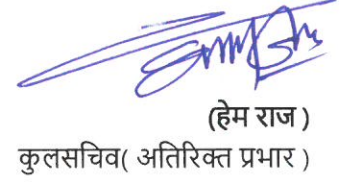 (हेम राज )
कुलसचिव( अतिरिक्त प्रभार )